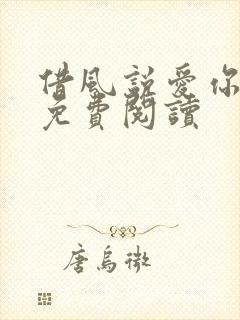 借風說愛你
免費閱讀
唐烏微